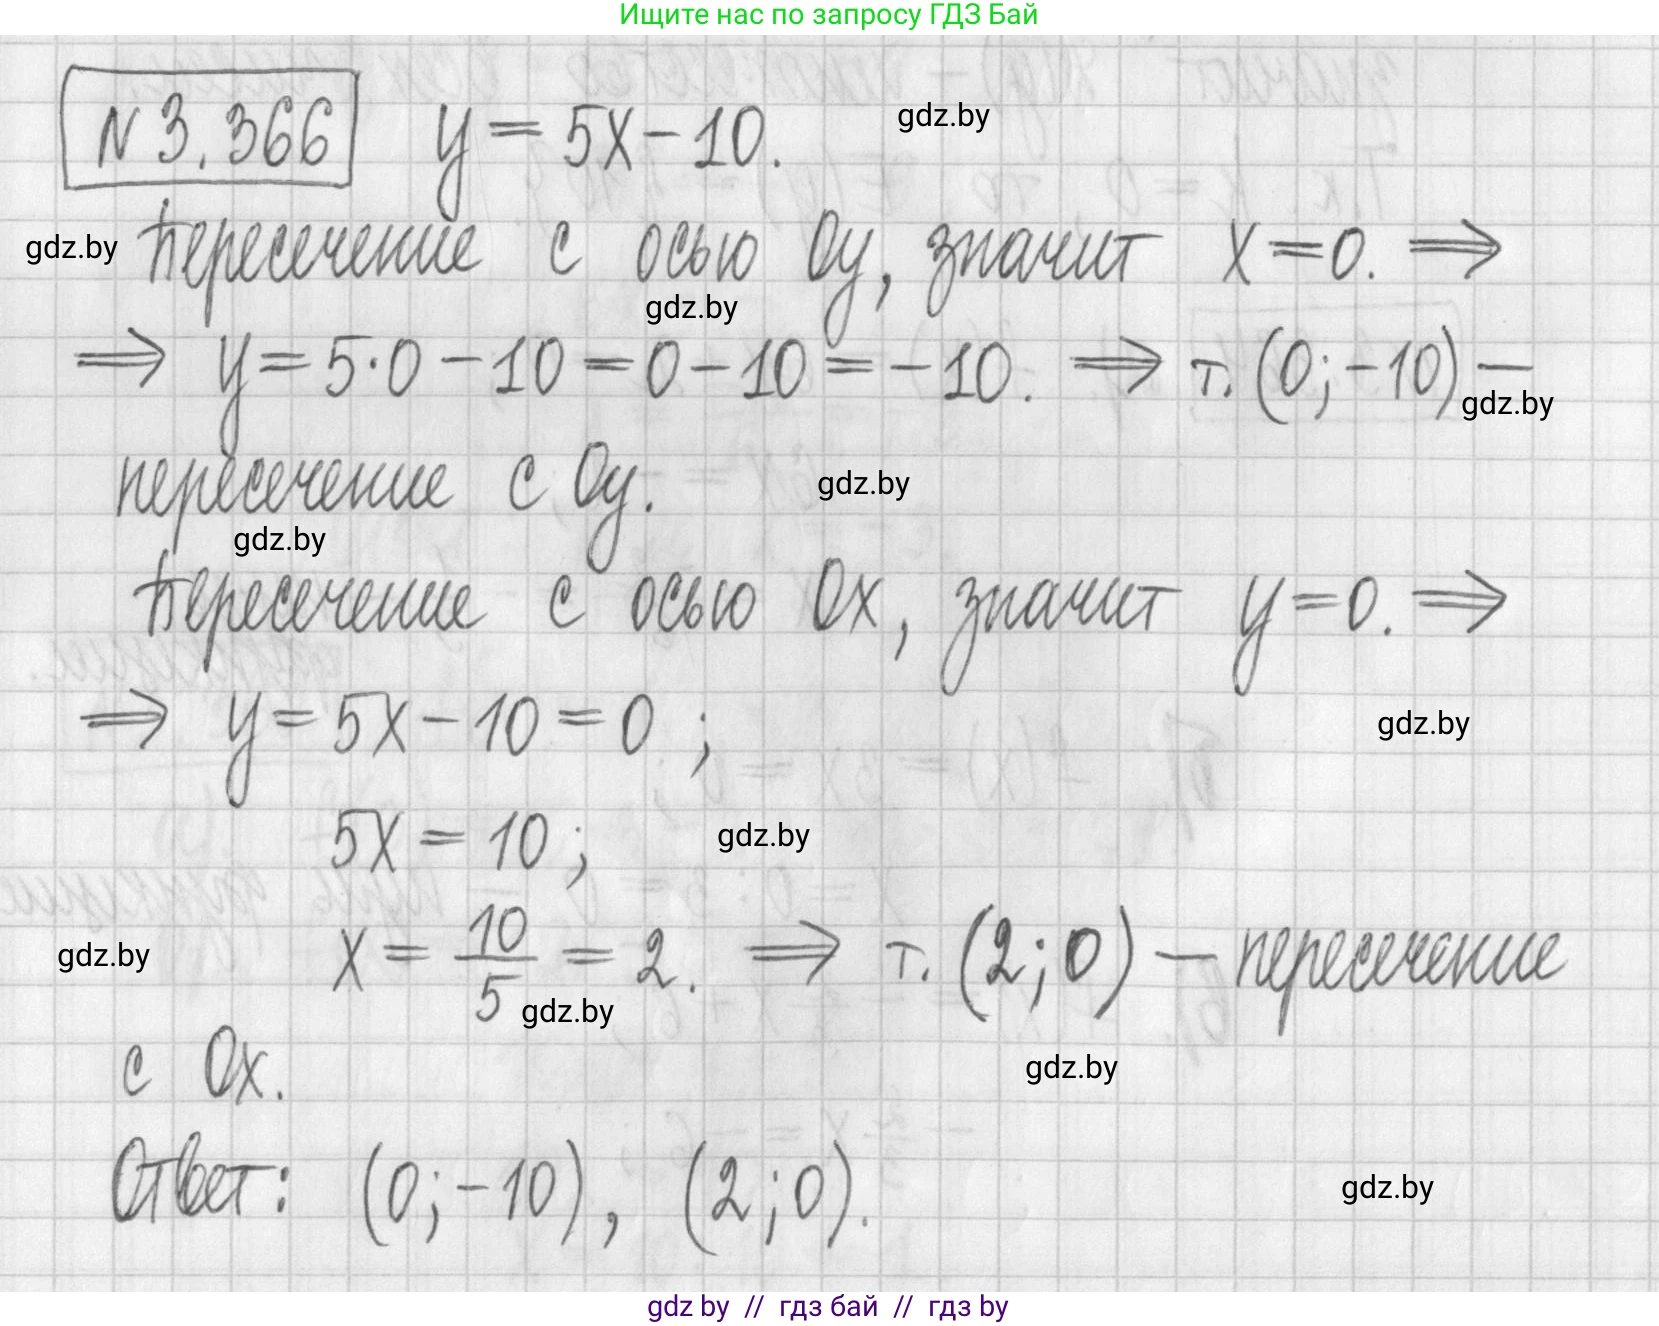 Ищите нас по запросу ГДЗ Бай
N 3.366 y = 5x - 10. gdz.by
gdz.by Пересечение с осью Oy, значит x = 0. ⇒
gdz.by
⇒ y = 5·0 - 10 = 0 - 10 = -10. ⇒ т. (0; -10) —
gdz.by
пересечение с Oy. gdz.by
gdz.by
Пересечение с осью Ox, значит y = 0. ⇒
⇒ y = 5x - 10 = 0 ; gdz.by
5x = 10 ; gdz.by
gdz.by x = 10/5 = 2. ⇒ т. (2; 0) — пересечение
gdz.by
с Ox. gdz.by
Ответ: (0; -10), (2; 0). gdz.by
gdz by // гдз бай // гдз by